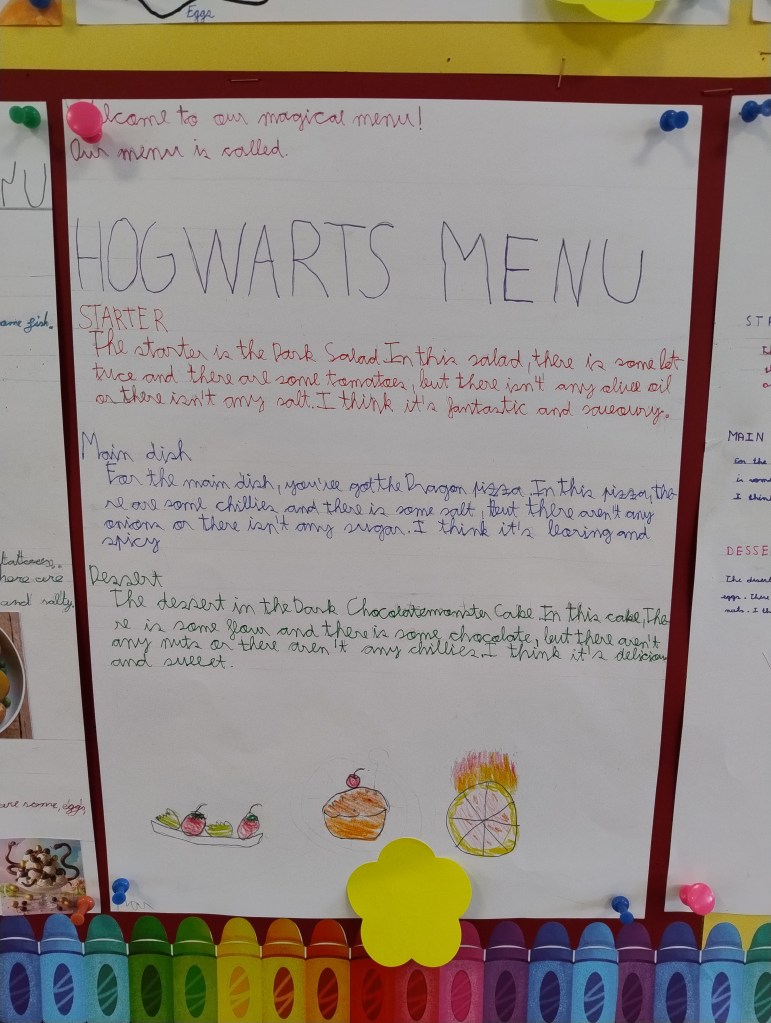 Eggs
lcome to our magical menu!
Our menu is called.
HOGWARTS MENU
STARTER
The starter is the Dark Salad In this salad, there is some let
tuce and there are some tomatoes, but there isn't any olive oil
or there isn't any salt. I think it's fantastic and saveoury.
Main dish
For the main dish, you've got the Dragon pizza In this pizza, the
re are some chillies and there is some salt, but there aren't any
onions or there isn't any sugar. I think it's boaring and
spicy
Dessert
The dessert in the Dark Chocolatemonster Cake In this cake, The
re is some flour and there is some chocolate, but there aren't
any nuts or there aren't any chillies. I think it's delicious
and sweet.
NU
ome fish.
tattoess.
here are
and salty.
are some, eggs
MAIN
For the
I think
DESSE
The desert
eggs. There
nuts. I th